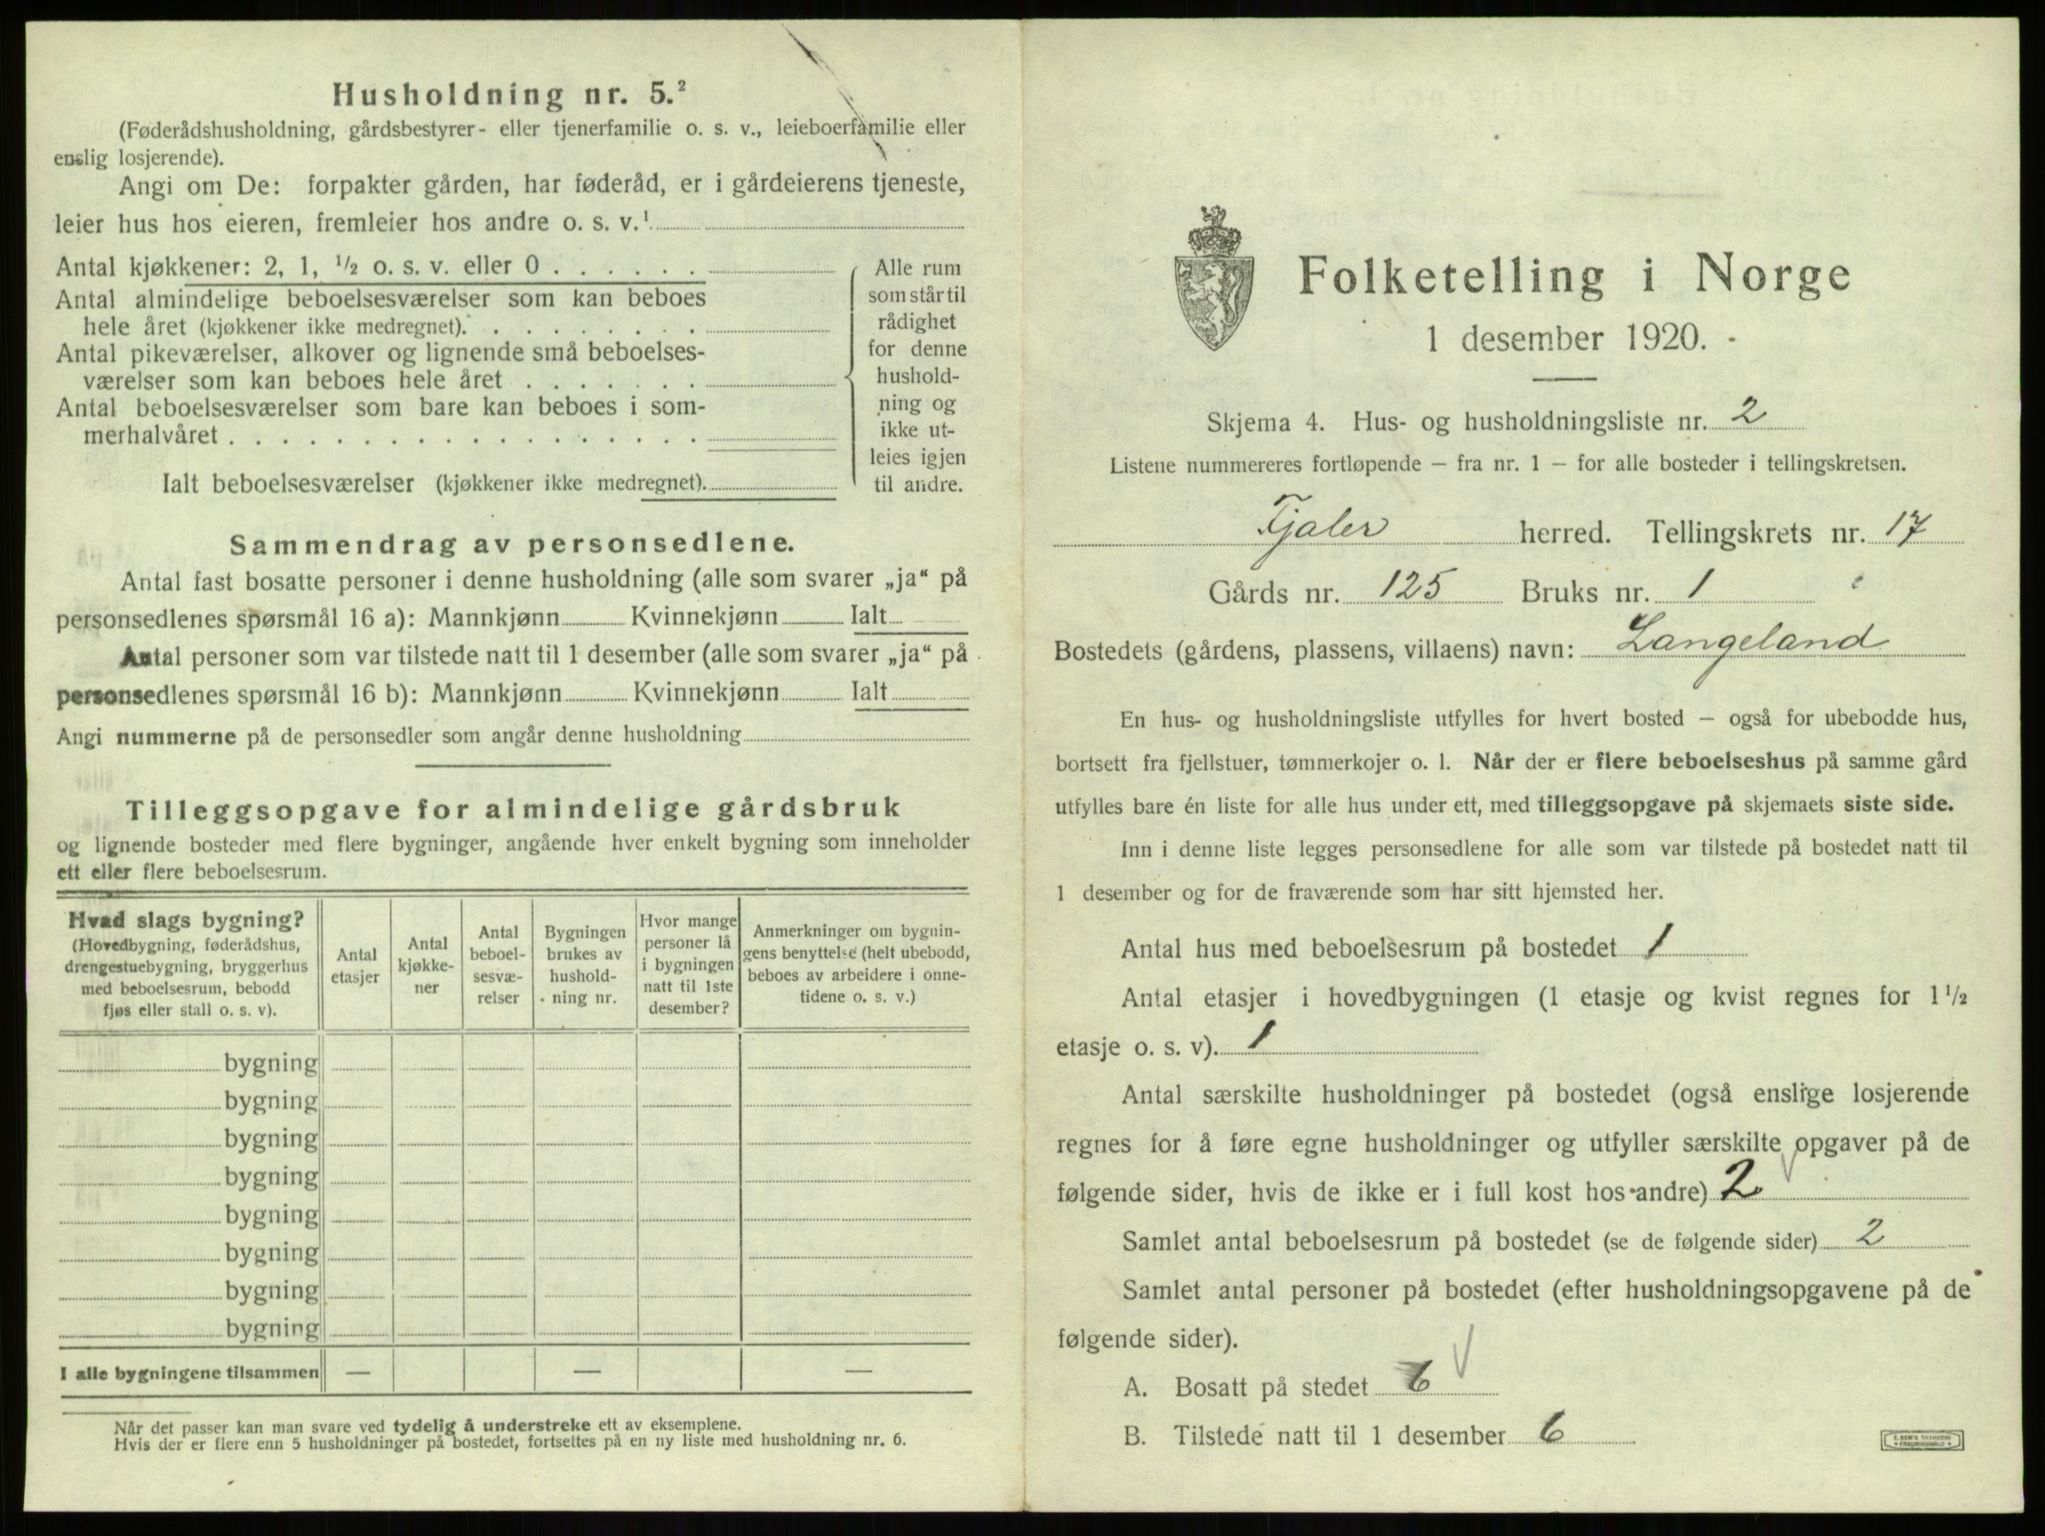 Husholdning nr. 5.²
(Føderådshusholdning, gårdsbestyrer- eller tjenerfamilie o. s. v., leieboerfamilie eller
enslig losjerende).
Angi om De: forpakter gården, har føderåd, er i gårdeierens tjeneste,
leier hus hos eieren, fremleier hos andre o. s. v.¹
Antal kjøkkener: 2, 1, ½ o. s. v. eller 0 . . . . . .
Antal almindelige beboelsesværelser som kan beboes
hele året (kjøkkener ikke medregnet). . . . . . . . .
Antal pikeværelser, alkover og lignende små beboelses-
værelser som kan beboes hele året . . . . . . .
Antal beboelsesværelser som bare kan beboes i som-
merhalvåret . . . . . . . . . . . . . . . . . .
Ialt beboelsesværelser (kjøkkener ikke medregnet).
Alle rum
som står til
rådighet
for denne
hushold-
ning og
ikke ut-
leies igjen
til andre.
Sammendrag av personsedlene.
Antal fast bosatte personer i denne husholdning (alle som svarer „ja“ på
personsedlenes spørsmål 16 a): Mannkjønn Kvinnekjønn Ialt
Antal personer som var tilstede natt til 1 desember (alle som svarer „ja“ på
personsedlenes spørsmål 16 b): Mannkjønn Kvinnekjønn Ialt
Angi nummerne på de personsedler som angår denne husholdning
Tilleggsopgave for almindelige gårdsbruk
og lignende bosteder med flere bygninger, angående hver enkelt bygning som inneholder
ett eller flere beboelsesrum.
Hvad slags bygning?
(Hovedbygning, føderådshus,
drengestuebygning, bryggerhus
med beboelsesrum, bebodd
fjøs eller stall o. s. v).
Antal
etasjer
Antal
kjøkke-
ner
Antal
beboel-
sesvæ-
relser
Bygningen
brukes av
hushold-
ning nr.
Hvor mange
personer lå
i bygningen
natt til 1ste
desember?
Anmerkninger om bygnin-
gens benyttelse (helt ubebodd,
beboes av arbeidere i onne-
tidene o. s. v.)
bygning
bygning
bygning
bygning
bygning
bygning
bygning
bygning
I alle bygningene tilsammen — — —
Når det passer kan man svare ved tydelig å understreke ett av eksemplene.
Hvis der er flere enn 5 husholdninger på bostedet, fortsettes på en ny liste med husholdning nr. 6.
Folketelling i Norge
1 desember 1920.
Skjema 4. Hus- og husholdningsliste nr. 2
Listene nummereres fortløpende — fra nr. 1 — for alle bosteder i tellingskretsen.
Fjaler herred. Tellingskrets nr. 17
Gårds nr. 125 Bruks nr. 1
Bostedets (gårdens, plassens, villaens) navn: Langeland
En hus- og husholdningsliste utfylles for hvert bosted — også for ubebodde hus,
bortsett fra fjellstuer, tømmerkojer o. l. Når der er flere beboelseshus på samme gård
utfylles bare én liste for alle hus under ett, med tilleggsopgave på skjemaets siste side.
Inn i denne liste legges personsedlene for alle som var tilstede på bostedet natt til
1 desember og for de fraværende som har sitt hjemsted her.
Antal hus med beboelsesrum på bostedet 1
Antal etasjer i hovedbygningen (1 etasje og kvist regnes for 1½
etasje o. s. v). 1
Antal særskilte husholdninger på bostedet (også enslige losjerende
regnes for å føre egne husholdninger og utfyller særskilte opgaver på de
følgende sider, hvis de ikke er i full kost hos andre) 2
Samlet antal beboelsesrum på bostedet (se de følgende sider) 2
Samlet antal personer på bostedet (efter husholdningsopgavene på de
følgende sider).
A. Bosatt på stedet 6
B. Tilstede natt til 1 desember 6